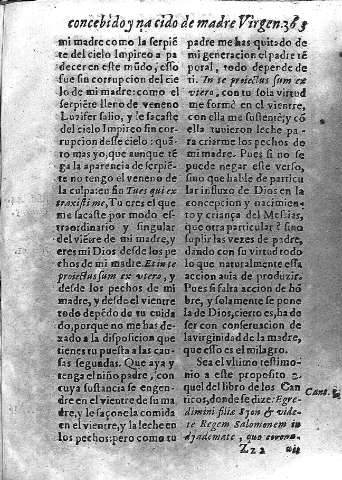 concebido y nacido de madre Virgen. 363
mi madre como la serpiẽ
te del cielo Impireo a pa
decer en este mũdo, esso
fue sin corrupcion del cie
lo de mi madre: como el
serpiẽte lleno de veneno
Luzifer salio, y le sacaste
del cielo Impireo sin cor-
rupcion desse cielo: quã-
to mas yo, que aunque tẽ
ga la aparencia de serpiẽ-
te no tengo el veneno de
la culpa: en fin Tu es qui ex
traxisti me, Tu eres el que
me sacaste por modo es-
traordinario y singular
del viẽtre de mi madre, y
eres mi Dios desde los pe
chos de mi madre. Et in te
proiectus sum ex vtero, y
desde los pechos de mi
madre, y desde el vientre
todo depẽdo de tu cuida
do, porque no me has de-
xado a la disposicion que
tienes tu puesta a las cau-
sas segundas. Que aya y
tenga el niño padre, con
cuya sustancia se engen-
dre en el vientre de su ma
dre, y le saçone la comida
en el vientre, y la leche en
los pechos: pero como tu
padre me has quitado de
mi generacion el padre tẽ
poral, todo depende de
ti. In te proiectus sum ex
vtero, con tu sola virtud
me formè en el vientre,
con ella me sustentè; y cõ
ella tuvieron leche pa-
ra criarme los pechos de
mi madre. Pues si no se
puede negar este verso,
sino que hable de particu
lar influxo de Dios en la
concepcion y nacimien-
to y criança del Messias,
que otra particular? sino
suplir las vezes de padre,
dando con su virtud todo
lo que naturalmente essa
accion auia de produzir.
Pues si falta accion de hõ
bre, y solamente se pone
la de Dios, cierto es, ha de
ser con conseruacion de
la virginidad de la madre,
que esso es el milagro.
Sea el vltimo testimo-
nio a este proposito a-
quel del libro de los Can
ticos, donde se dize: Egre-
Cant. 3.
dimini filiæ Syon & vide-
te Regem Salomonem in
dyademate, quo corona-
Zz 2